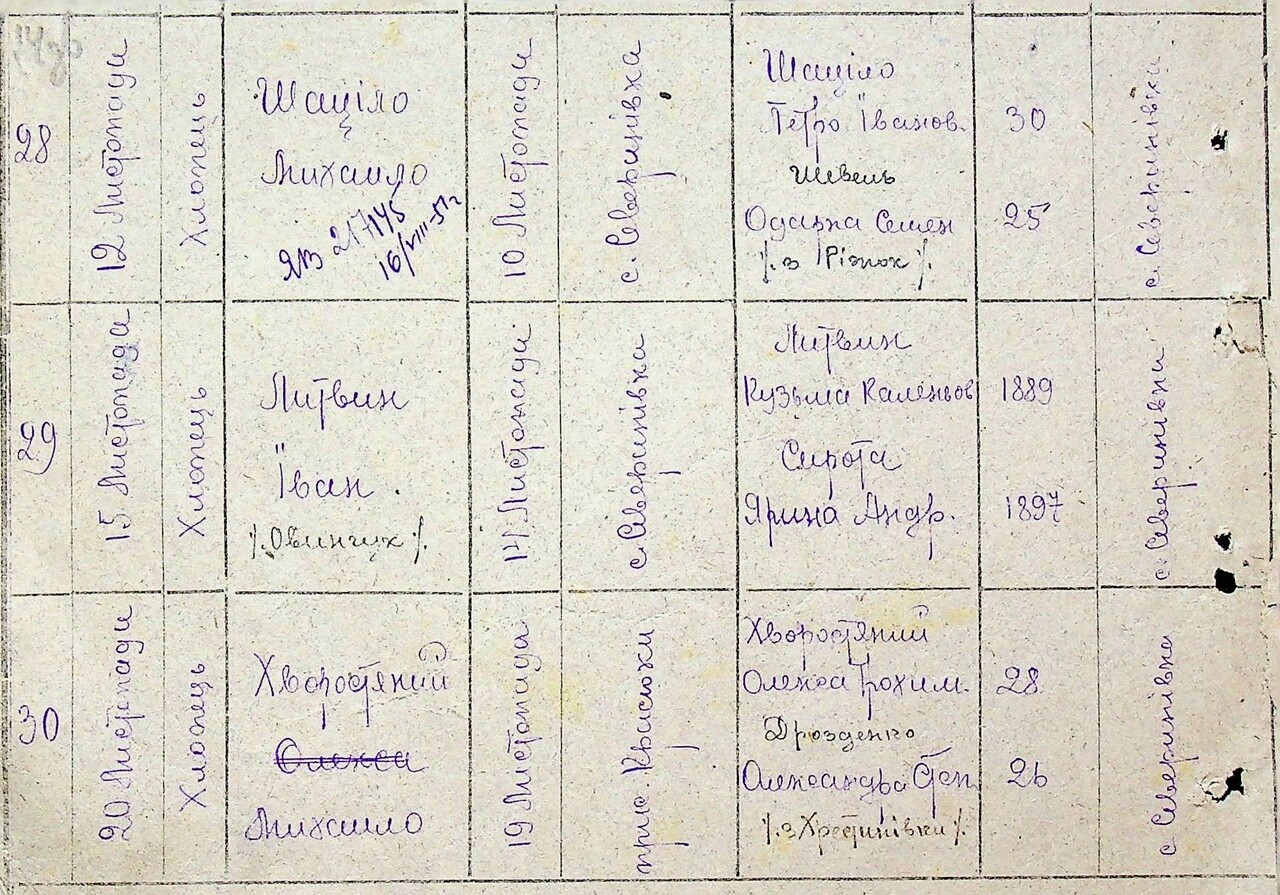 28
12 Листопада
Хлопець
Шаціло
Михайло
ЯЗ 217145
16/VIII-51г
10 Листопада
с. Северинівка
Шаціло
Петро Їванов.
Швець
Одарка Семен
/. з Різнок /.
30
25
с. Северинівка
29
15 Листопада
Хлопець
Литвин
Їван.
/. Овинчук /.
14 Листопада
с. Северинівка
Литвин
Кузьма Каленьов
Сирота
Ярина Андр.
1889
1897
с. Северинівка
30
20 Листопада
Хлопець
Хворостяний
Олекса
Михайло
19 Листопада
прис. Красюки
Хворостяний
Олекса Трохим.
Дрозденко
Олександра Степ.
/. з Хрестинівки /.
28
26
с. Северинівка